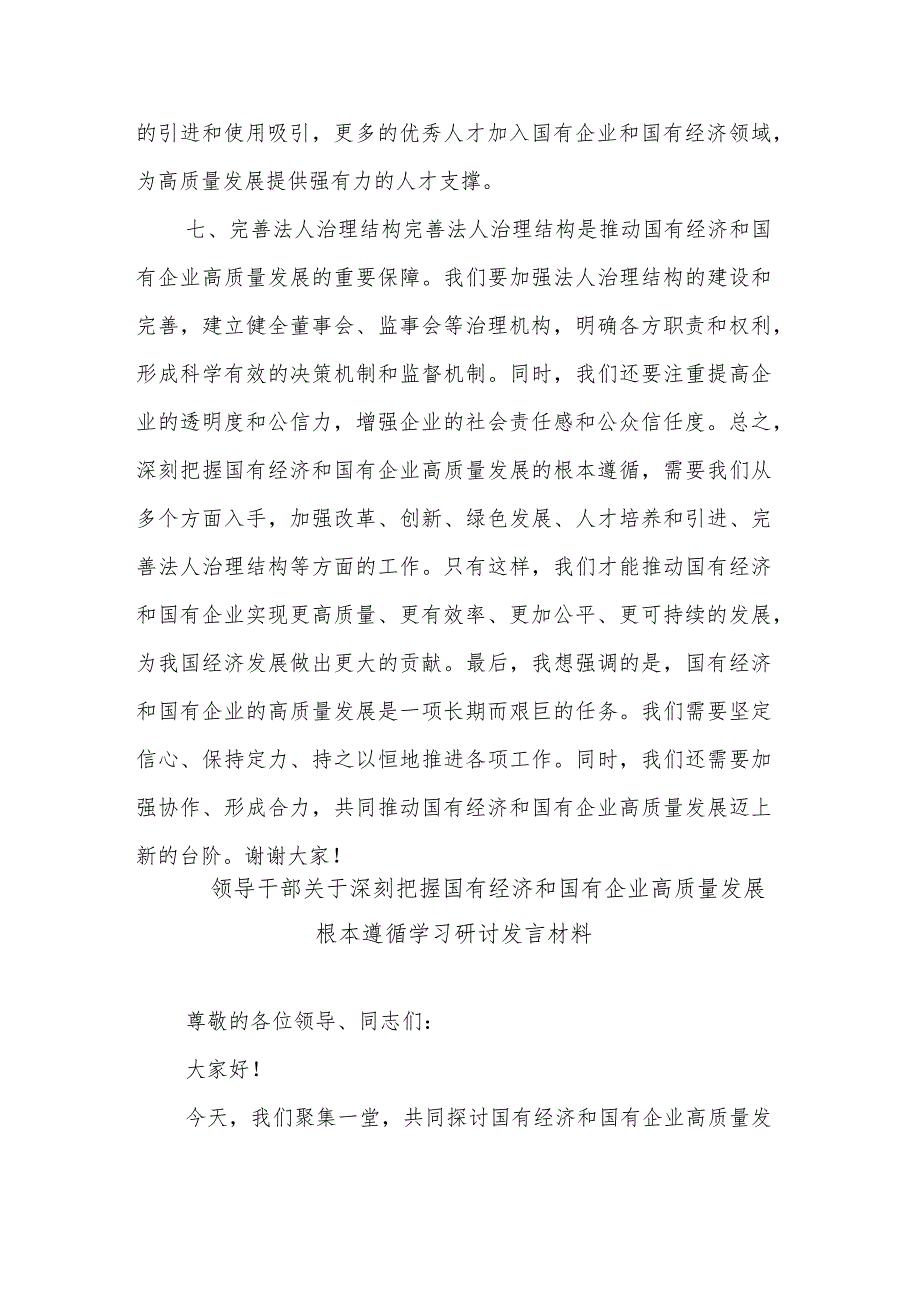 的引进和使用吸引，更多的优秀人才加入国有企业和国有经济领域，
为高质量发展提供强有力的人才支撑。
七、完善法人治理结构完善法人治理结构是推动国有经济和国
有企业高质量发展的重要保障。我们要加强法人治理结构的建设和
完善，建立健全董事会、监事会等治理机构，明确各方职责和权利，
形成科学有效的决策机制和监督机制。同时，我们还要注重提高企
业的透明度和公信力，增强企业的社会责任感和公众信任度。总之，
深刻把握国有经济和国有企业高质量发展的根本遵循，需要我们从
多个方面入手，加强改革、创新、绿色发展、人才培养和引进、完
善法人治理结构等方面的工作。只有这样，我们才能推动国有经济
和国有企业实现更高质量、更有效率、更加公平、更可持续的发展，
为我国经济发展做出更大的贡献。最后，我想强调的是，国有经济
和国有企业的高质量发展是一项长期而艰巨的任务。我们需要坚定
信心、保持定力、持之以恒地推进各项工作。同时，我们还需要加
强协作、形成合力，共同推动国有经济和国有企业高质量发展迈上
新的台阶。谢谢大家！
领导干部关于深刻把握国有经济和国有企业高质量发展
根本遵循学习研讨发言材料
尊敬的各位领导、同志们：
大家好！
今天，我们聚集一堂，共同探讨国有经济和国有企业高质量发